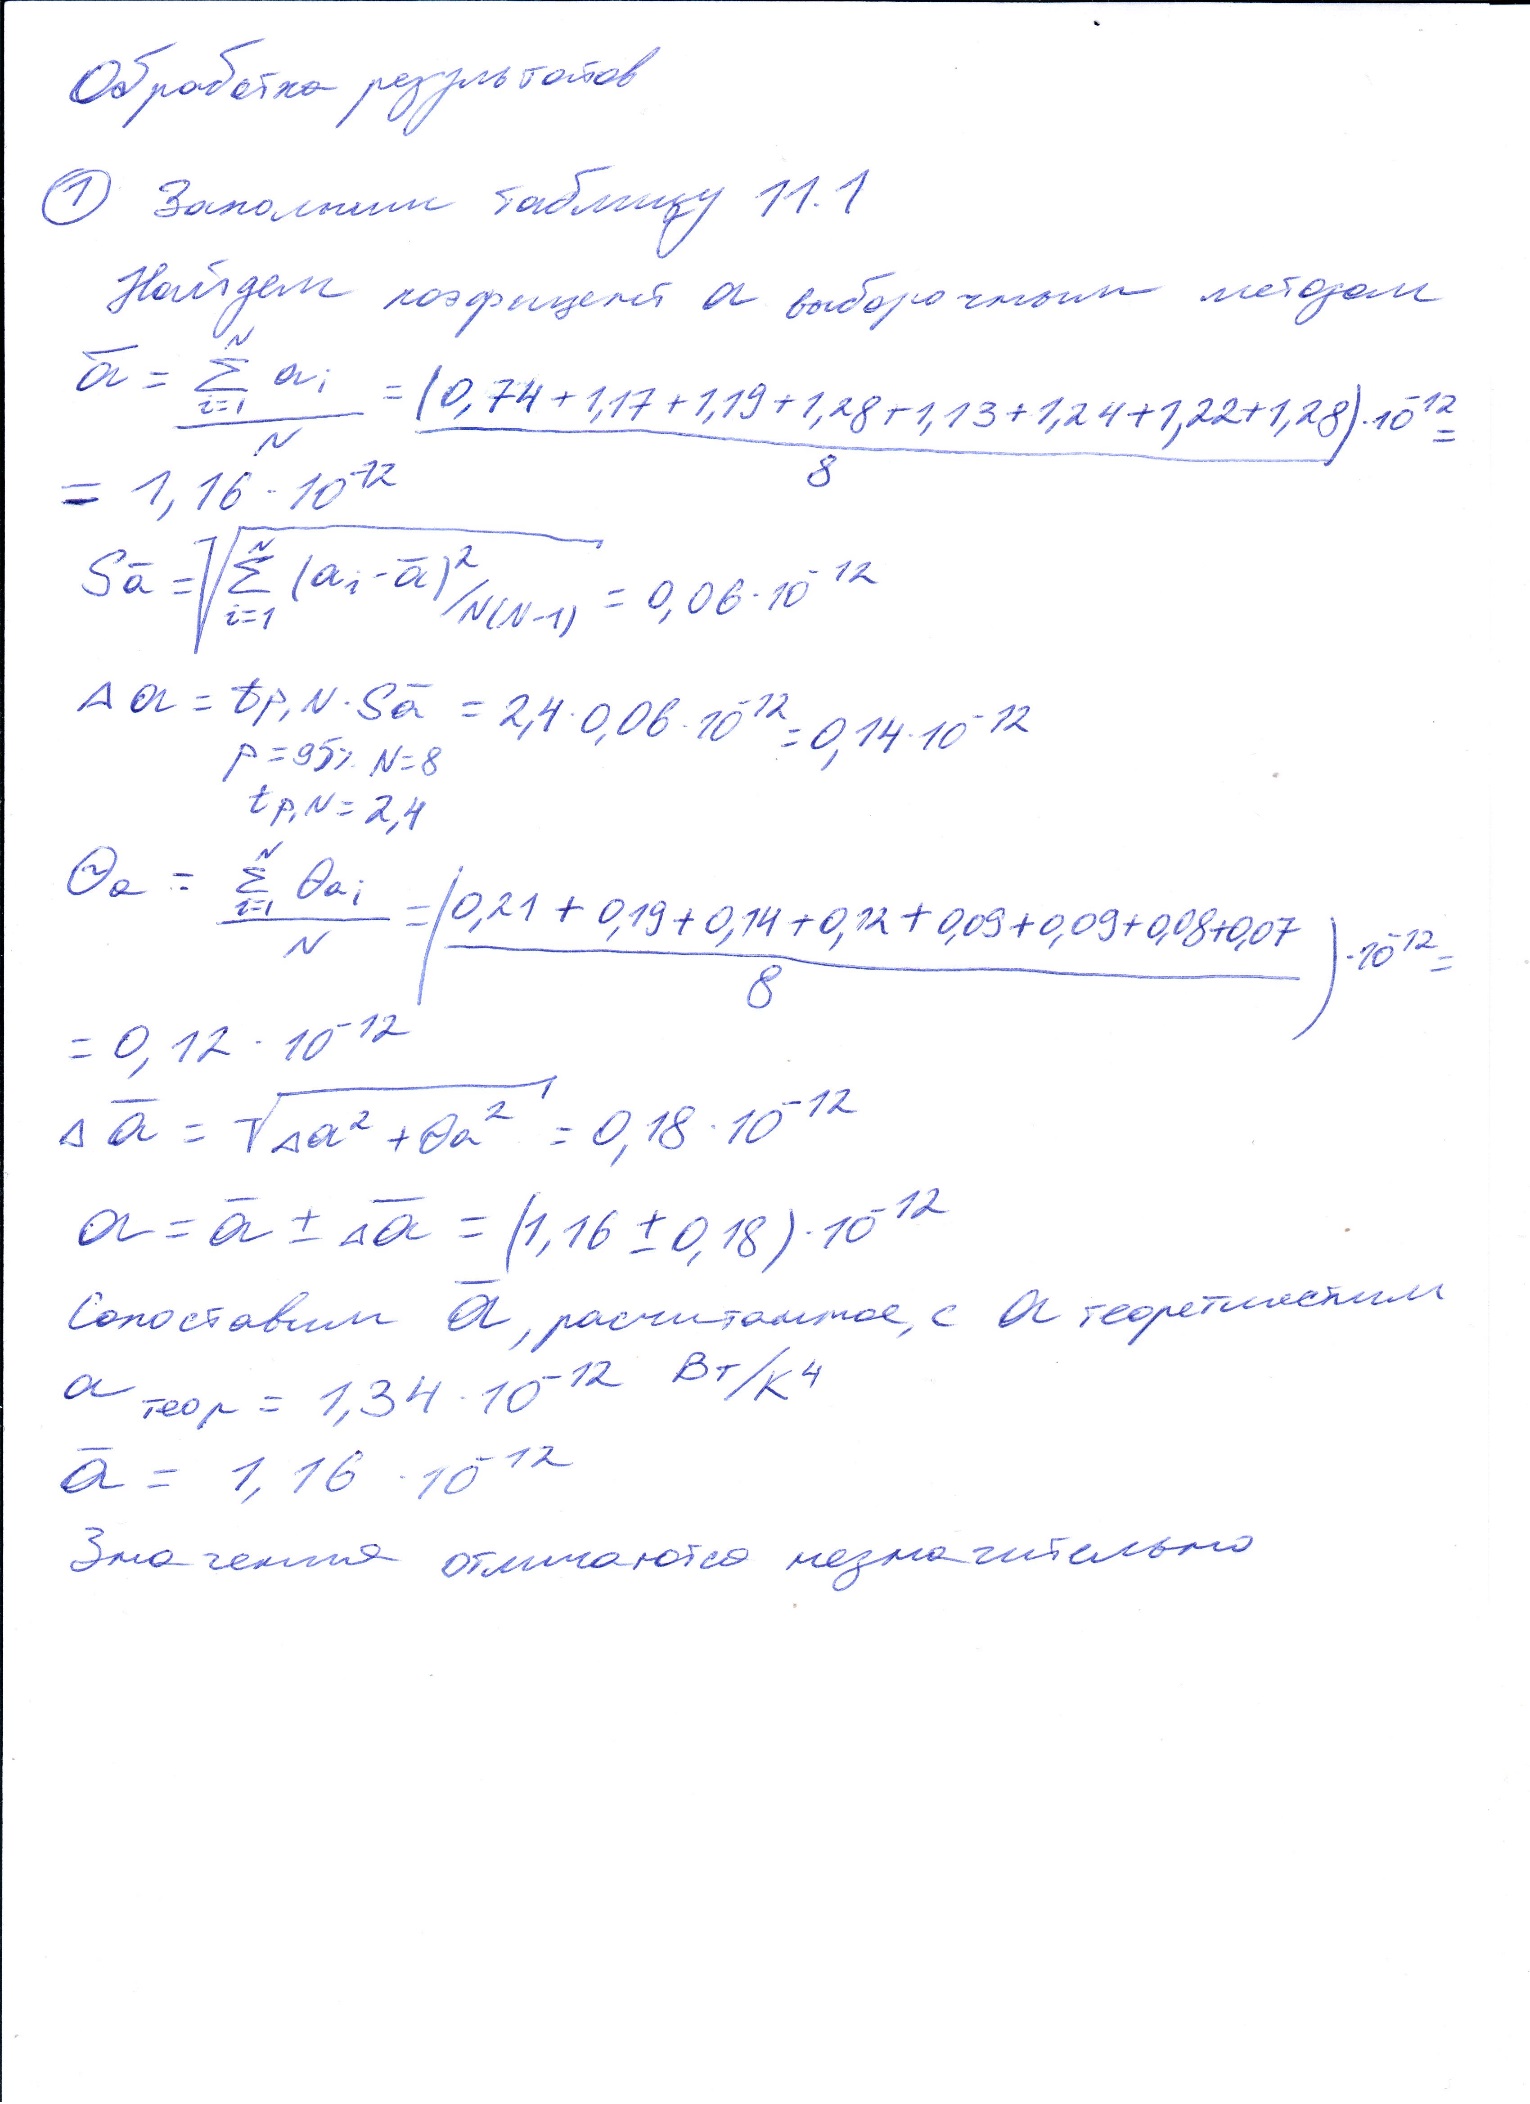 Обработка результатов
① Заполним таблицу 11.1
Найдем коэфицент a выборочным методом
a̅ = (∑_{i=1}^{N} a_i)/N = ((0,74+1,17+1,19+1,28+1,13+1,24+1,22+1,28)·10^{-12})/8 =
= 1,16·10^{-12}
S_a̅ = √(∑_{i=1}^{N} (a_i - a̅)²/N(N-1)) = 0,06·10^{-12}
Δa = t_{p,N}·S_a̅ = 2,4·0,06·10^{-12} = 0,14·10^{-12}
p=95% N=8
t_{p,N} = 2,4
θ_a = (∑_{i=1}^{N} θ_{a_i})/N = ((0,21 + 0,19 + 0,14 + 0,12 + 0,09 + 0,09 + 0,08 + 0,07)/8)·10^{-12} =
= 0,12·10^{-12}
Δa̅ = √(Δa² + θ_a²) = 0,18·10^{-12}
a = a̅ ± Δa̅ = (1,16 ± 0,18)·10^{-12}
Сопоставим a̅, расчитанное, с a теоретическим
a_{теор} = 1,34·10^{-12} Вт/К⁴
a̅ = 1,16·10^{-12}
Значения отличаются незначительно